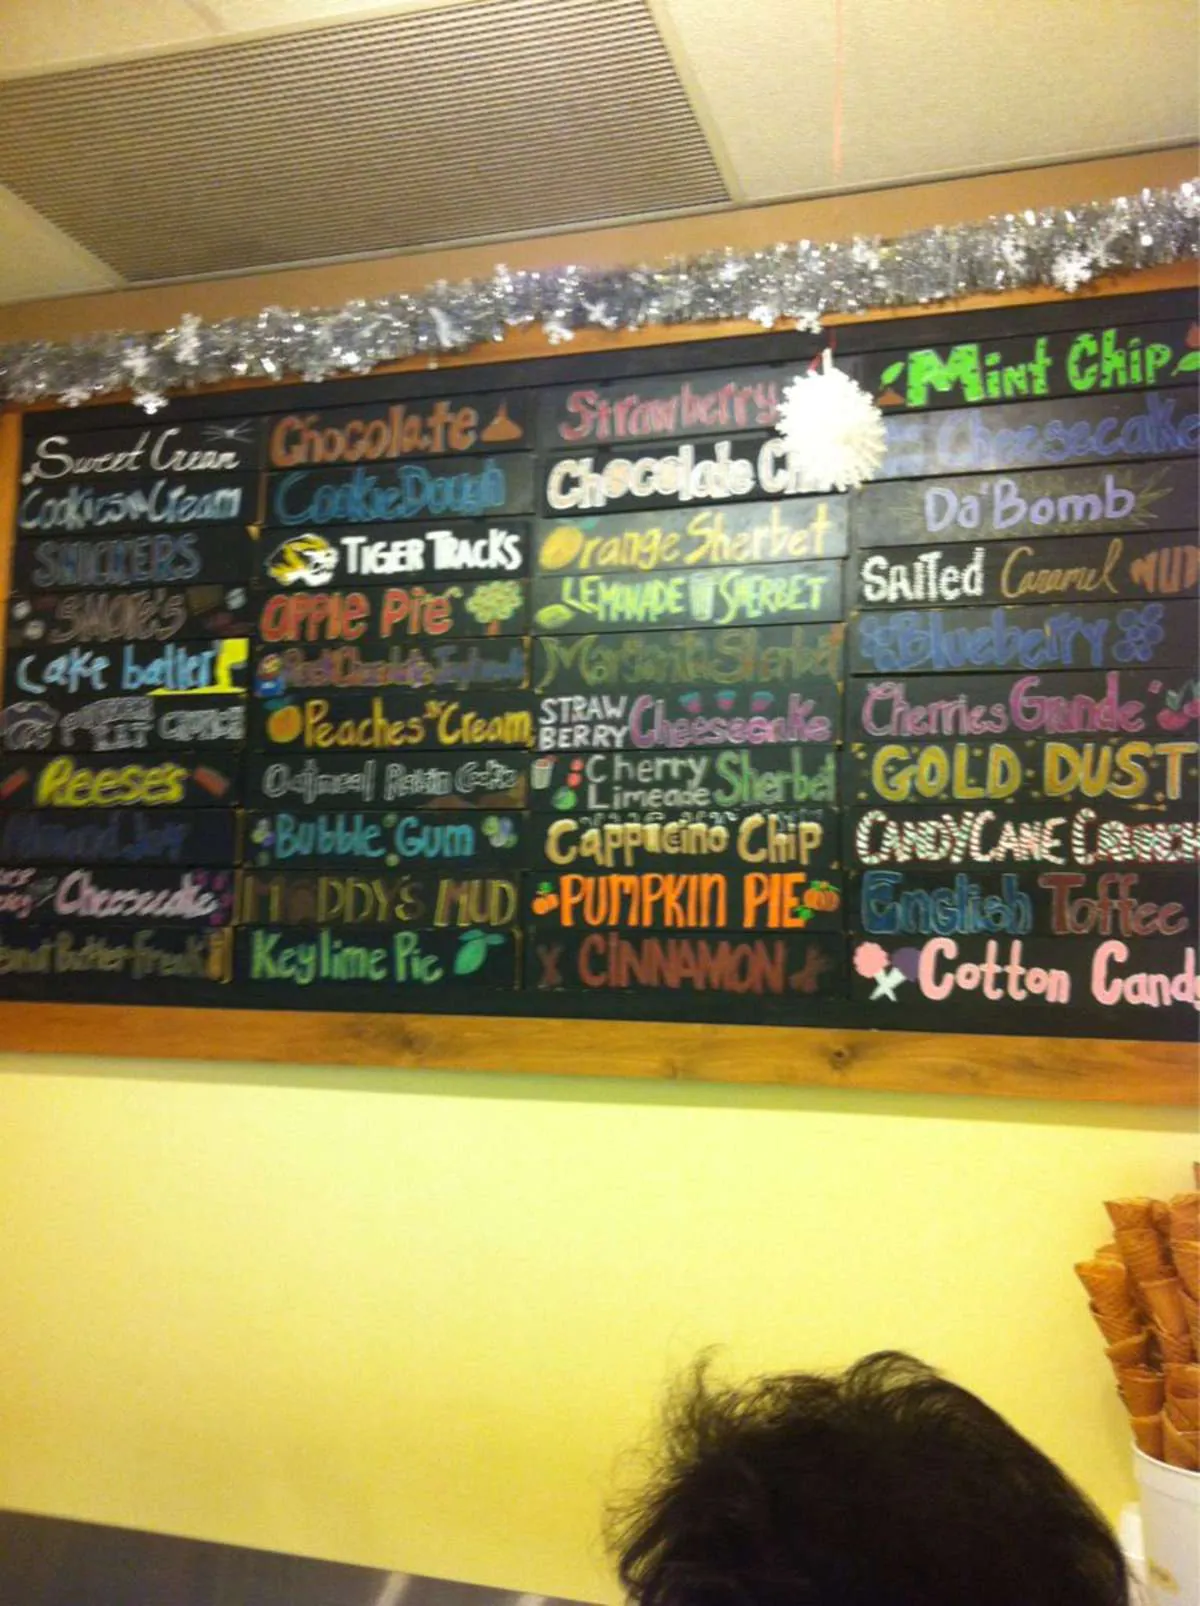 Sweet Cream
Cookies n Cream
SNICKERS
SMORE'S
cake batter
Reese's
Almond Joy
Cheesecake
Butter Freak
Chocolate
Cookie Dough
TIGER TRACKS
APPLE PIE
Peaches n Cream
Oatmeal Raisin Cookie
Bubble Gum
MUDDY'S MUD
Key lime Pie
Strawberry
Chocolate
Orange Sherbet
LEMONADE SHERBET
Margarita Sherbet
STRAW BERRY Cheesecake
Cherry Limeade Sherbet
Cappucino Chip
PUMPKIN PIE
CINNAMON
Mint Chip
Cheesecake
Da'Bomb
SAlTed Caramel
Blueberry
Cherries Grande
GOLD DUST
CANDYCANE
English Toffee
Cotton Cand